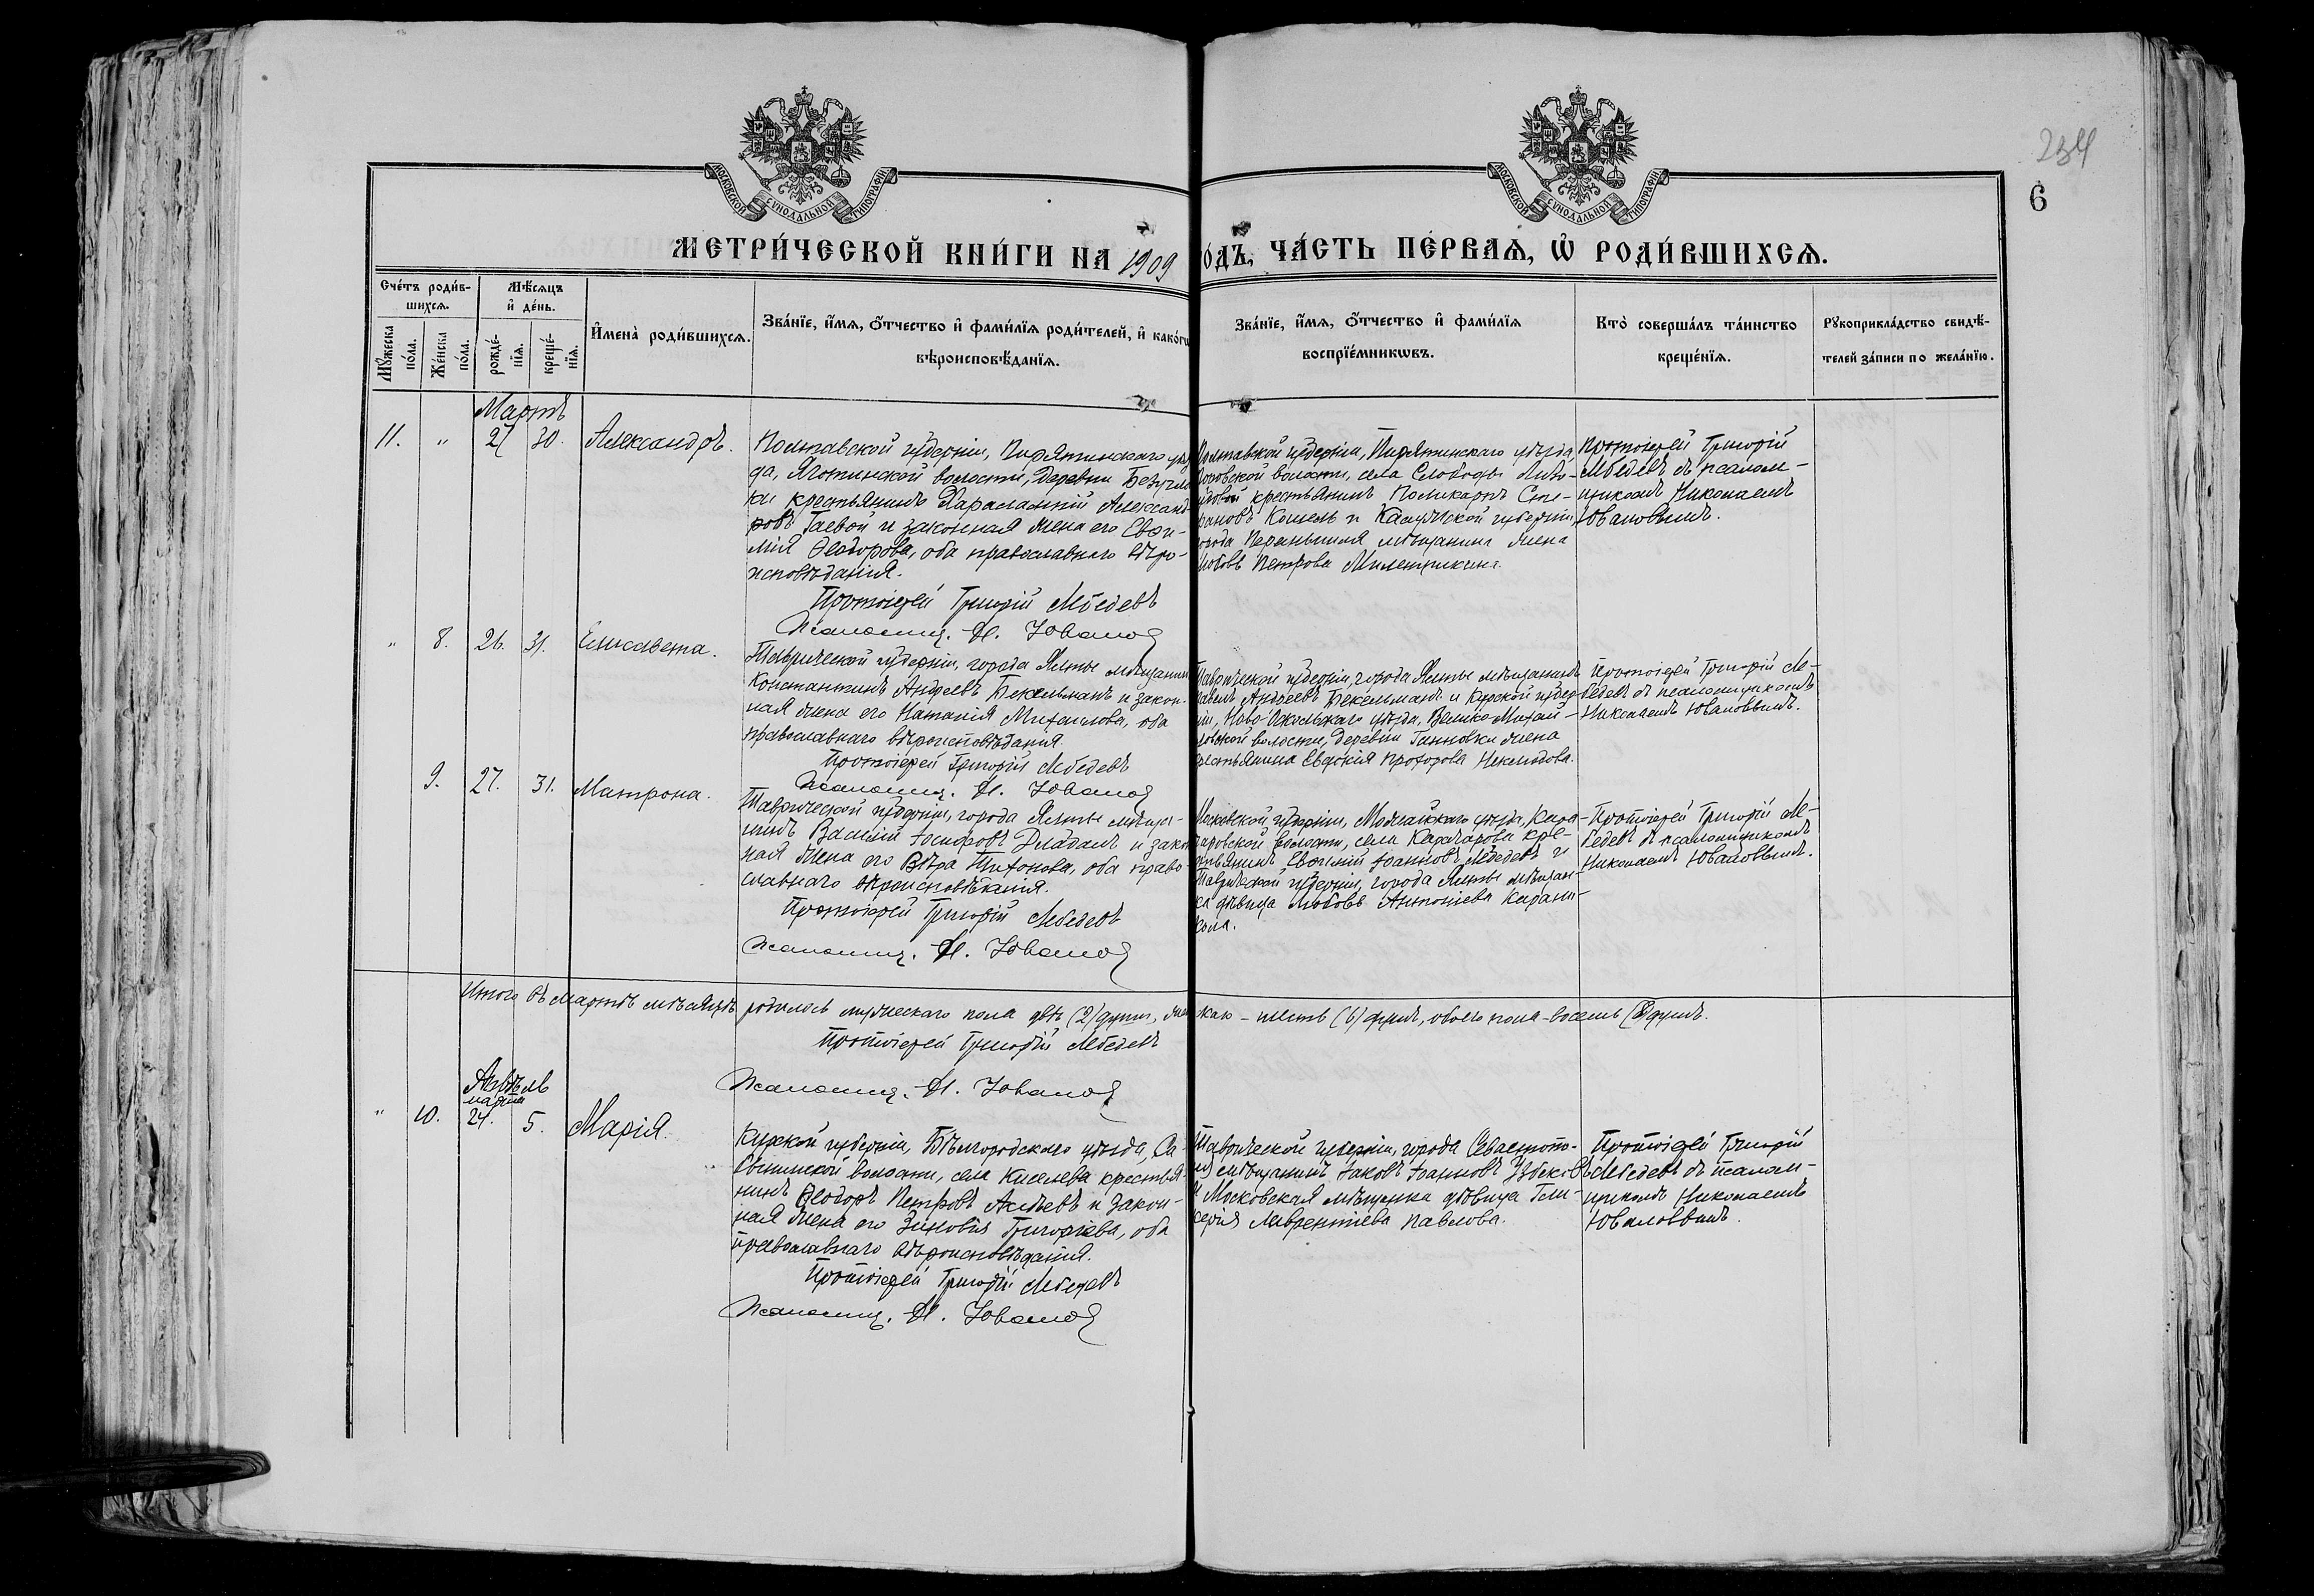 234
6
МОСКОВСКОЙ СѴНОДАЛЬНОЙ ТИПОГРАФІИ
МОСКОВСКОЙ СѴНОДАЛЬНОЙ ТИПОГРАФІИ
МЕТРИ́ЧЕСКОЙ КНИ́ГИ НА 1909
ѻ́дъ, ЧА́СТЬ ПЕ́РВАѦ, Ѡ҆ РОДИ́ВШИХСѦ.
Сче́тъ роди́в-
шихсѧ.
Мꙋ́жеска по́ла.
Же́нска по́ла.
Мѣ́сѧцъ
и҆ де́нь.
рожде́-
нїѧ.
креще́-
нїѧ.
И҆мена̀ роди́вшихсѧ.
Зва́нїе, и҆́мѧ, ѻ҆́тчество и҆ фами́лїѧ роди́телей, и҆ како́гѡ
вѣроисповѣ́данїѧ.
Зва́нїе, и҆́мѧ, ѻ҆́тчество и҆ фами́лїѧ
воспрїе́мникѡвъ.
Кто̀ соверша́лъ та́инство
креще́нїѧ.
Рꙋкоприкла́дство свидѣ́-
телей за́писи по жела́нїю.
Мартъ
11. " 27 30. Александръ.
Полтавской губерніи, Пирятинскаго уѣз
да, Яготинской волости, деревни Безугло
ки крестьянинъ Харалампій Александ
ровъ Гаевой и законная жена его Евфи-
мія Ѳеодорова, оба православнаго вѣро-
исповѣданія.
Протоіерей Григорій Лебедевъ
Псаломщ. Н. Юванов
Полтавской губерніи, Пирятинскаго уѣзда,
волости, села Слободы
крестьянинъ Поликарпъ Сте-
фановъ Кошель и Калужской губерніи,
города Перемышля мѣщанина жена
Любовь Петрова
Протоіерей Григорій
Лебедевъ съ псалом-
щикомъ Николаемъ
Ювановымъ.
" 8. 26. 31. Елисавета.
Таврической губерніи, города Ялты мѣщанинъ
Константинъ Андреевъ Бекельманъ и закон-
ная жена его Наталія Михаилова, оба
православнаго вѣроисповѣданія.
Протоіерей Григорій Лебедевъ
Псаломщ. Н. Юванов
Таврической губерніи, города Ялты мѣщанинъ
Андреевъ Бекельманъ и Курской губер-
ніи, Ново-Оскольскаго уѣзда, Велико-Михай-
ловской волости, деревни Ганновки жена
крестьянина Евдокія Прохорова Неклюдова.
Протоіерей Григорій Ле-
бедевъ съ псаломщикомъ
Николаемъ Ювановымъ.
9. 27. 31. Матрона.
Таврической губерніи, города Ялты мѣща-
нинъ Василій Іосифовъ и закон
ная жена его Вѣра Тихонова, оба право-
славнаго вѣроисповѣданія.
Протоіерей Григорій Лебедевъ
Псаломщ. Н. Юванов
Московской губерніи, Можайскаго уѣзда, Кара-
чаровской волости, села Карачарова кре-
стьянинъ Евгеній Іоанновъ Лебедевъ и
Таврической губерніи, города Ялты мѣщан-
ка дѣвица Любовь Антоніева
Протоіерей Григорій Ле-
бедевъ съ псаломщикомъ
Николаемъ Ювановымъ.
Итого въ мартѣ мѣсяцѣ родилось мужескаго пола двѣ (2) души, жен
скаго – шесть (6) душъ, обоего пола – восемь (8) душъ.
Протоіерей Григорій Лебедевъ
Псаломщ. Н. Юванов
Апрѣль
марта
" 10. 24. 5. Марія.
Курской губерніи, Бѣлгородскаго уѣзда, Са-
бынинской волости, села Киселева крестья-
нинъ Ѳеодоръ Петровъ и закон-
ная жена его Зиновія Григоріева, оба
православнаго вѣроисповѣданія.
Протоіерей Григорій Лебедевъ
Псаломщ. Н. Юванов
Таврической губерніи, города Севастопо-
ля мѣщанинъ Іаковъ Іоанновъ
и Московская мѣщанка дѣвица Гли-
керія Лаврентіева Павлова.
Протоіерей Григорій
Лебедевъ съ псалом-
щикомъ Николаемъ
Ювановымъ.